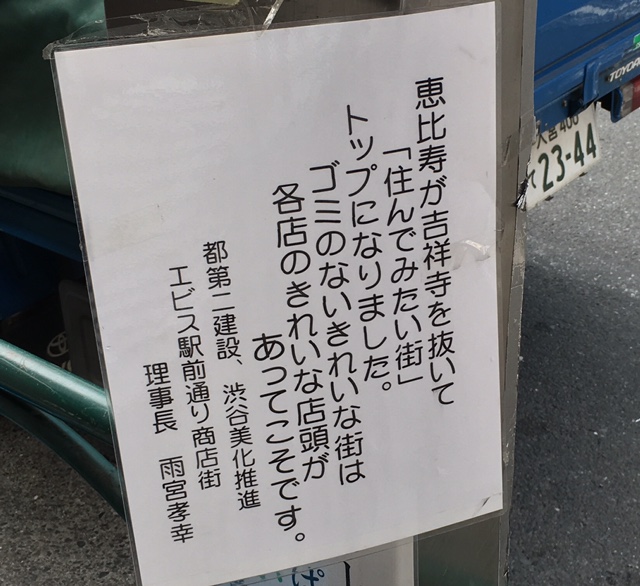 恵比寿が吉祥寺を抜いて
「住んでみたい街」
トップになりました。
ゴミのないきれいな街は
各店のきれいな店頭が
あってこそです。
都第二建設、渋谷美化推進
エビス駅前通り商店街
理事長 雨宮孝幸
大宮 400
23-44
TOYOTA